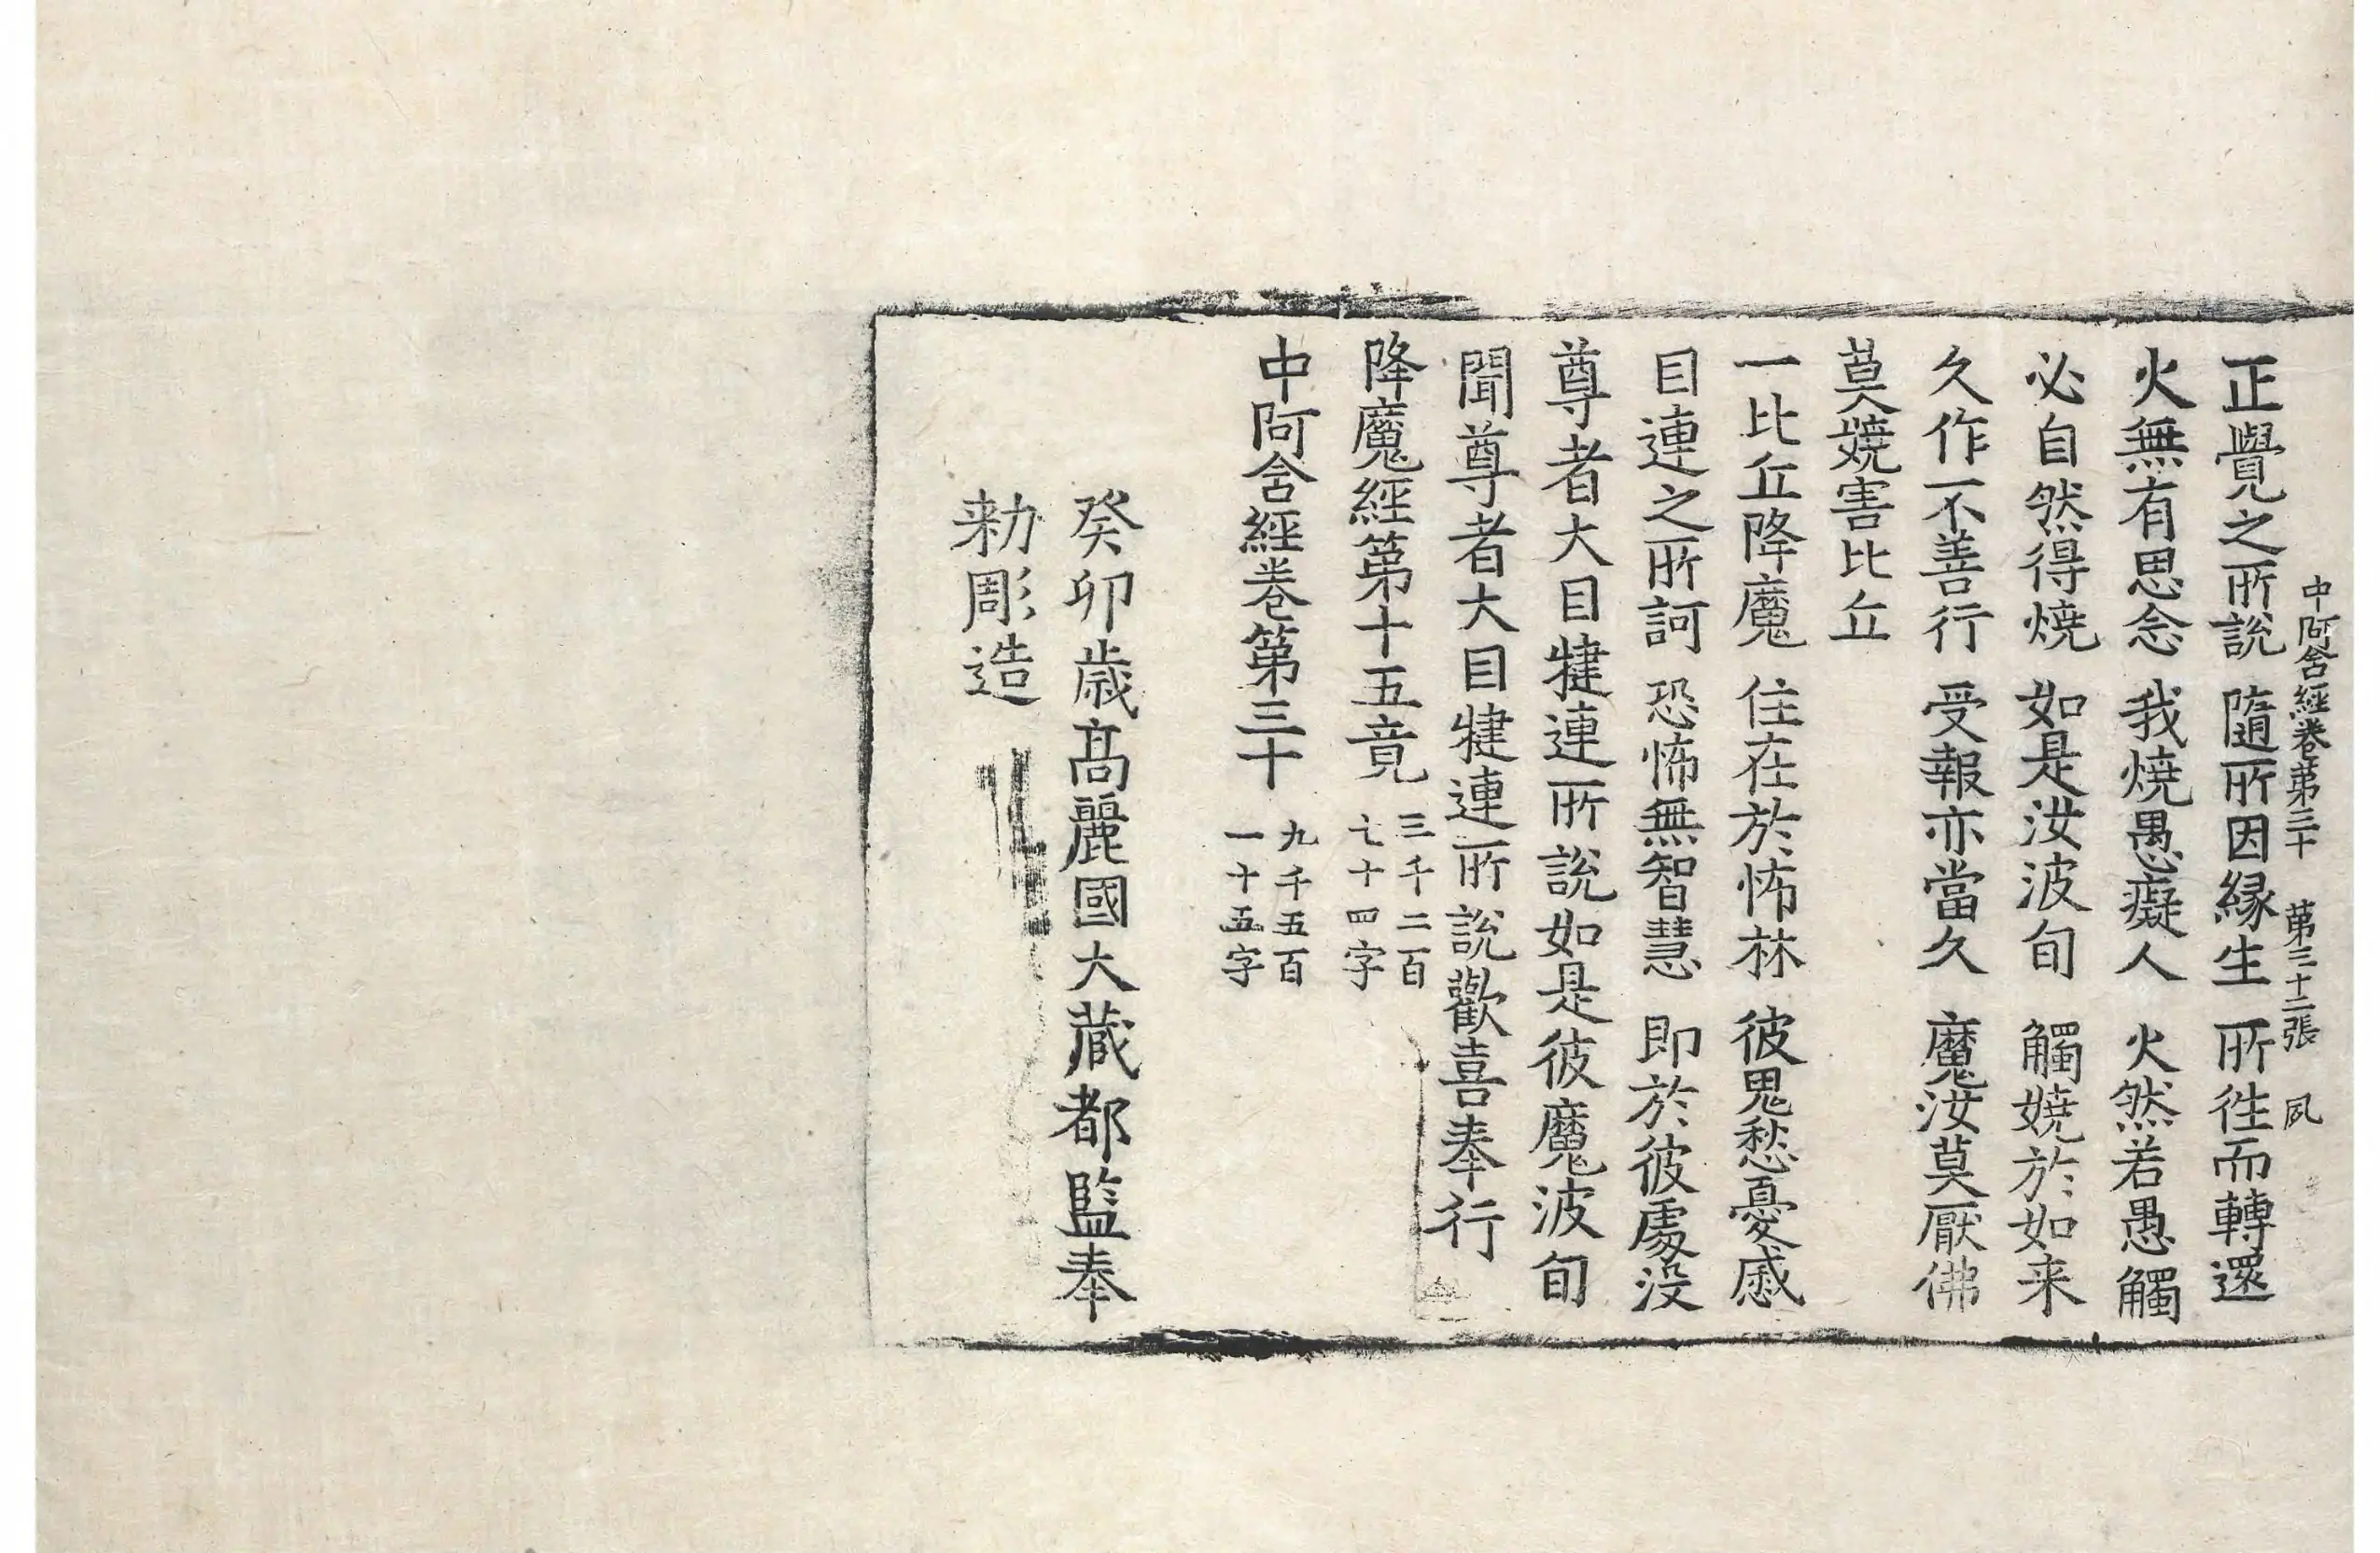 中阿含經卷第三十　第三十二張　夙
正覺之所説　隨所因縁生　所徃而轉還
火無有思念　我燒愚癡人　火然若愚觸
必自然得燒　如是汝波旬　觸嬈於如来
久作不善行　受報亦當久　魔汝莫厭佛
莫嬈害比丘
一比丘降魔　住在於怖林　彼鬼愁憂慼
目連之所訶　恐怖無智慧　即於彼處没
尊者大目揵連所説如是彼魔波旬
聞尊者大目揵連所説歡喜奉行
降魔經第十五竟　三千二百七十四字
中阿含經卷第三十　九千五百一十五字
癸卯歲高麗國大藏都監奉
勑彫造